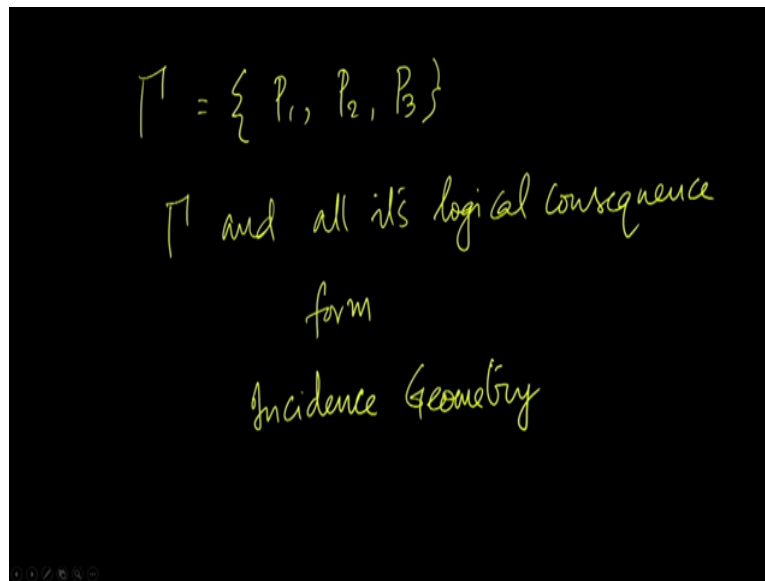 Γ = { P₁, P₂, P₃}
Γ and all it's logical consequence
form
Incidence Geometry